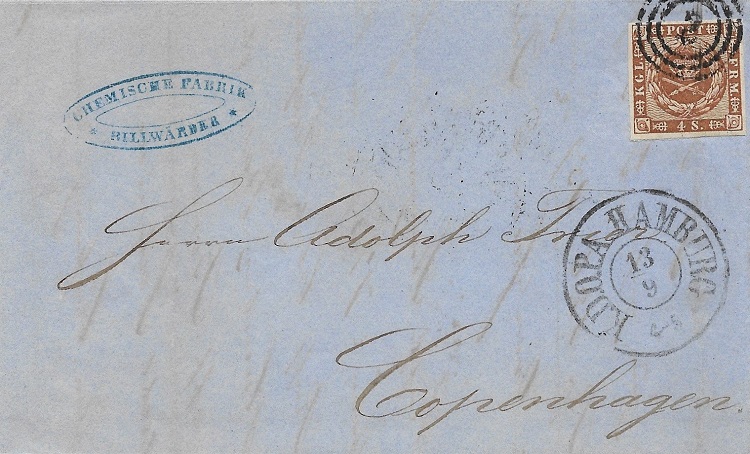 CHEMISCHE FABRIK
* BILLWÄRDER *
KGL POST FRM
4 S.
Herrn Adolph
Copenhagen.
K.D.O.P.A. HAMBURG
13
9